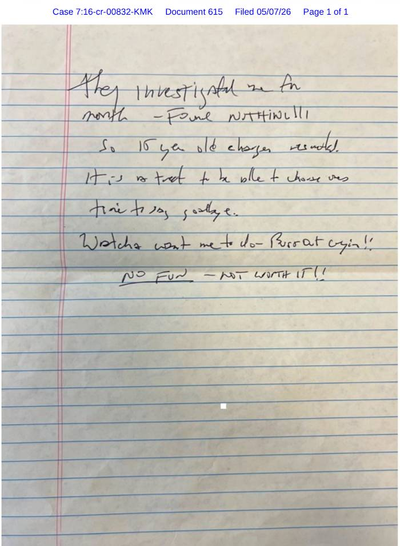 Case 7:16-cr-00832-KMK Document 615 Filed 05/07/26 Page 1 of 1
They investigated me for
month – Found NOTHING!!!
So 15 year old charges
It is a treat to be able to choose
time to say goodbye.
Watcha want me to do – Burst out cryin!!
NO FUN – NOT WORTH IT!!